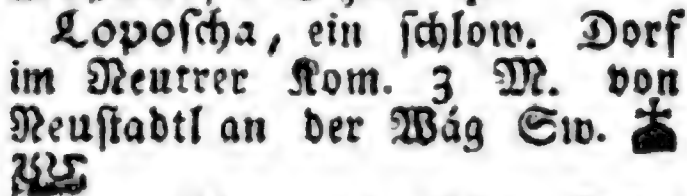 Loposcha, ein schlow. Dorf
im Neutrer Kom. 3 M. von
Neustadtl an der Wág Sw.